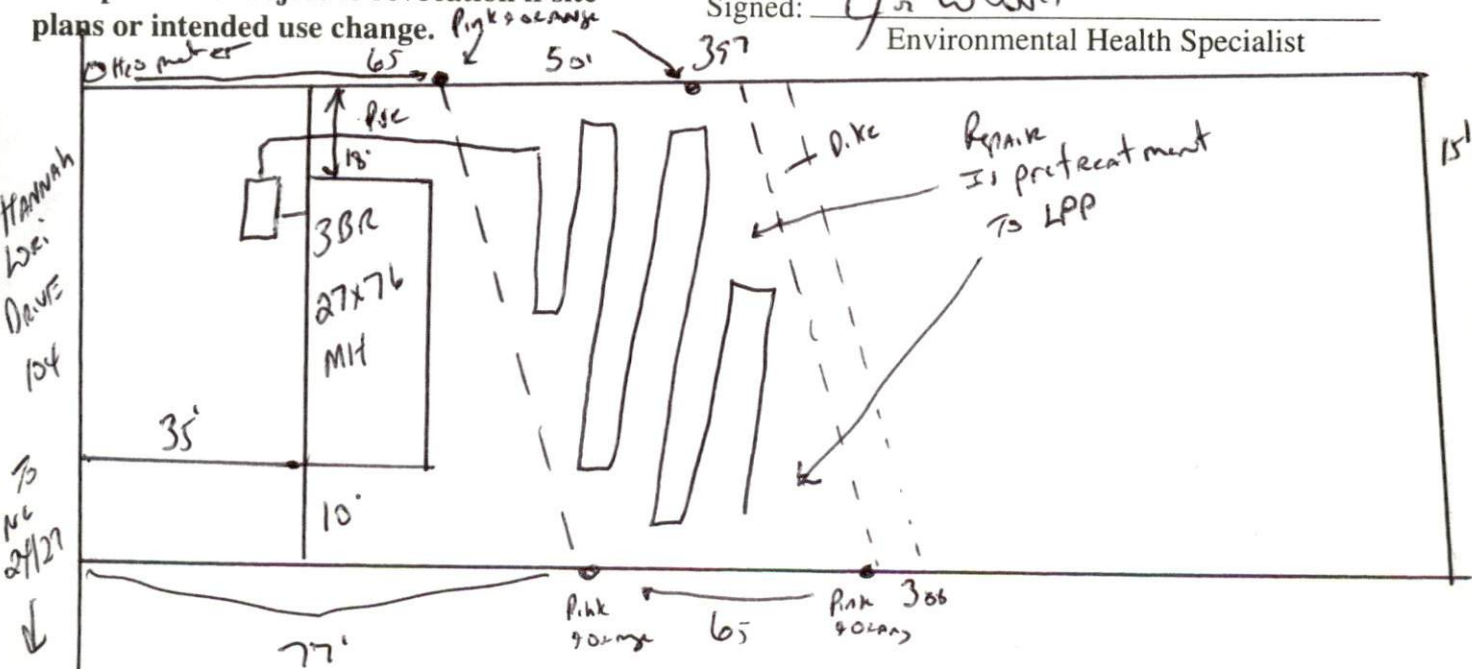 plans or intended use change.
Signed:
Environmental Health Specialist
Pink & orange
H2O meter
65
50'
397
PSC
18'
Dike
Repair
Is pretreatment
To LPP
15'
HANNAH
LORI
DRIVE
104
3BR
27x76
MH
35'
10'
To
NC
24/27
77'
Pink
& orange
65
Pink
& orang
306